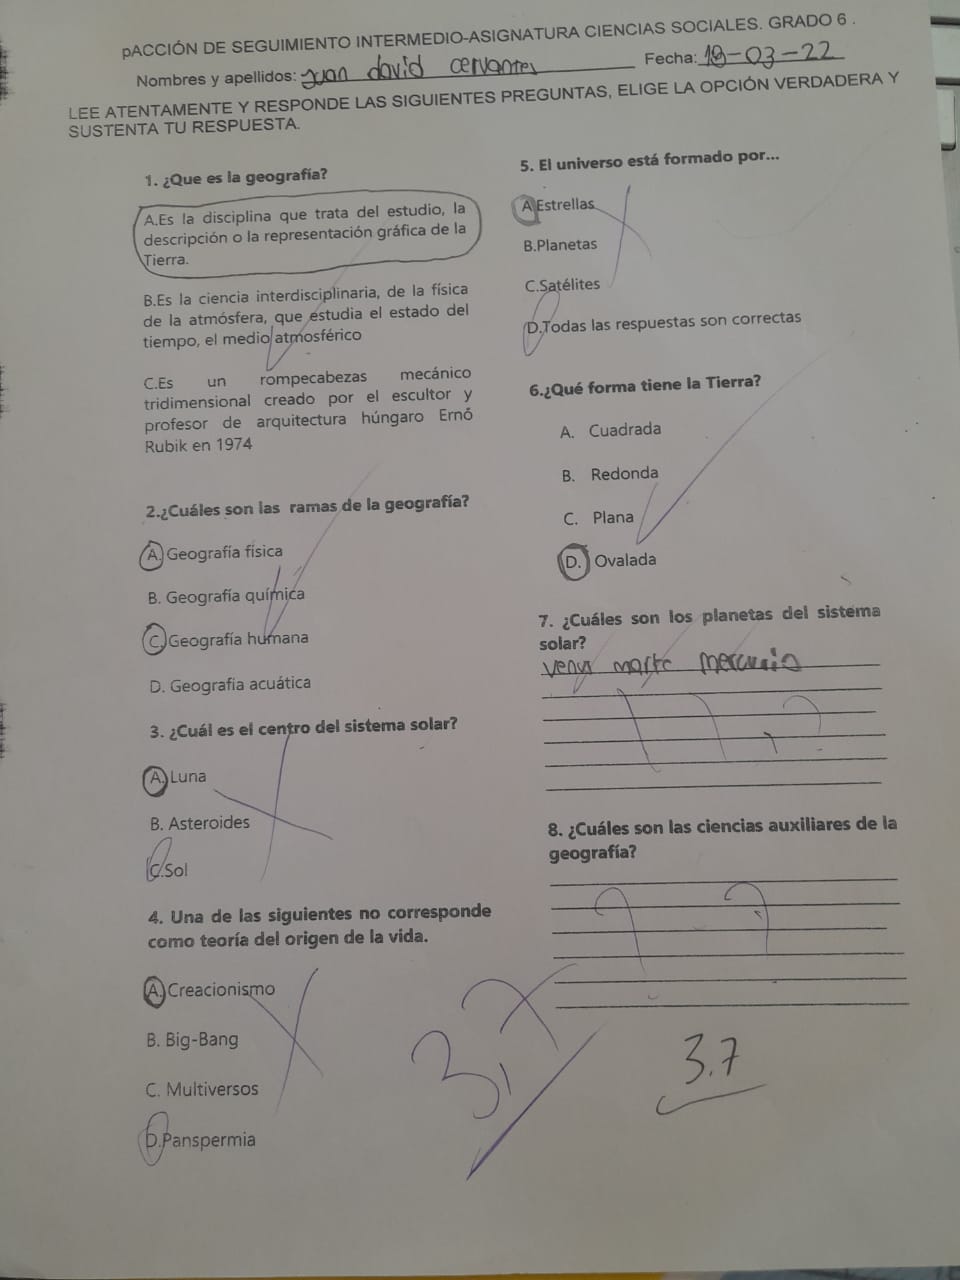 pACCIÓN DE SEGUIMIENTO INTERMEDIO-ASIGNATURA CIENCIAS SOCIALES. GRADO 6 .
Nombres y apellidos: Juan david cervantes Fecha: 18-03-22
LEE ATENTAMENTE Y RESPONDE LAS SIGUIENTES PREGUNTAS, ELIGE LA OPCIÓN VERDADERA Y
SUSTENTA TU RESPUESTA.
1. ¿Que es la geografía?
A.Es la disciplina que trata del estudio, la
descripción o la representación gráfica de la
Tierra.
B.Es la ciencia interdisciplinaria, de la física
de la atmósfera, que estudia el estado del
tiempo, el medio atmosférico
C.Es un rompecabezas mecánico
tridimensional creado por el escultor y
profesor de arquitectura húngaro Ernő
Rubik en 1974
2.¿Cuáles son las ramas de la geografía?
A. Geografía física
B. Geografía química
C. Geografía humana
D. Geografia acuática
3. ¿Cuál es el centro del sistema solar?
A. Luna
B. Asteroides
C.Sol
4. Una de las siguientes no corresponde
como teoría del origen de la vida.
A. Creacionismo
B. Big-Bang
C. Multiversos
D.Panspermia
5. El universo está formado por...
A.Estrellas
B.Planetas
C.Satélites
D.Todas las respuestas son correctas
6.¿Qué forma tiene la Tierra?
A. Cuadrada
B. Redonda
C. Plana
D. Ovalada
7. ¿Cuáles son los planetas del sistema
solar?
venus marte mercurio
8. ¿Cuáles son las ciencias auxiliares de la
geografía?
3,7
3.7